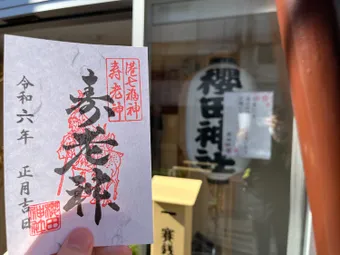 港七福神
寿老神
寿老神
令和六年
正月吉日
櫻田神社
櫻田神社
賽銭